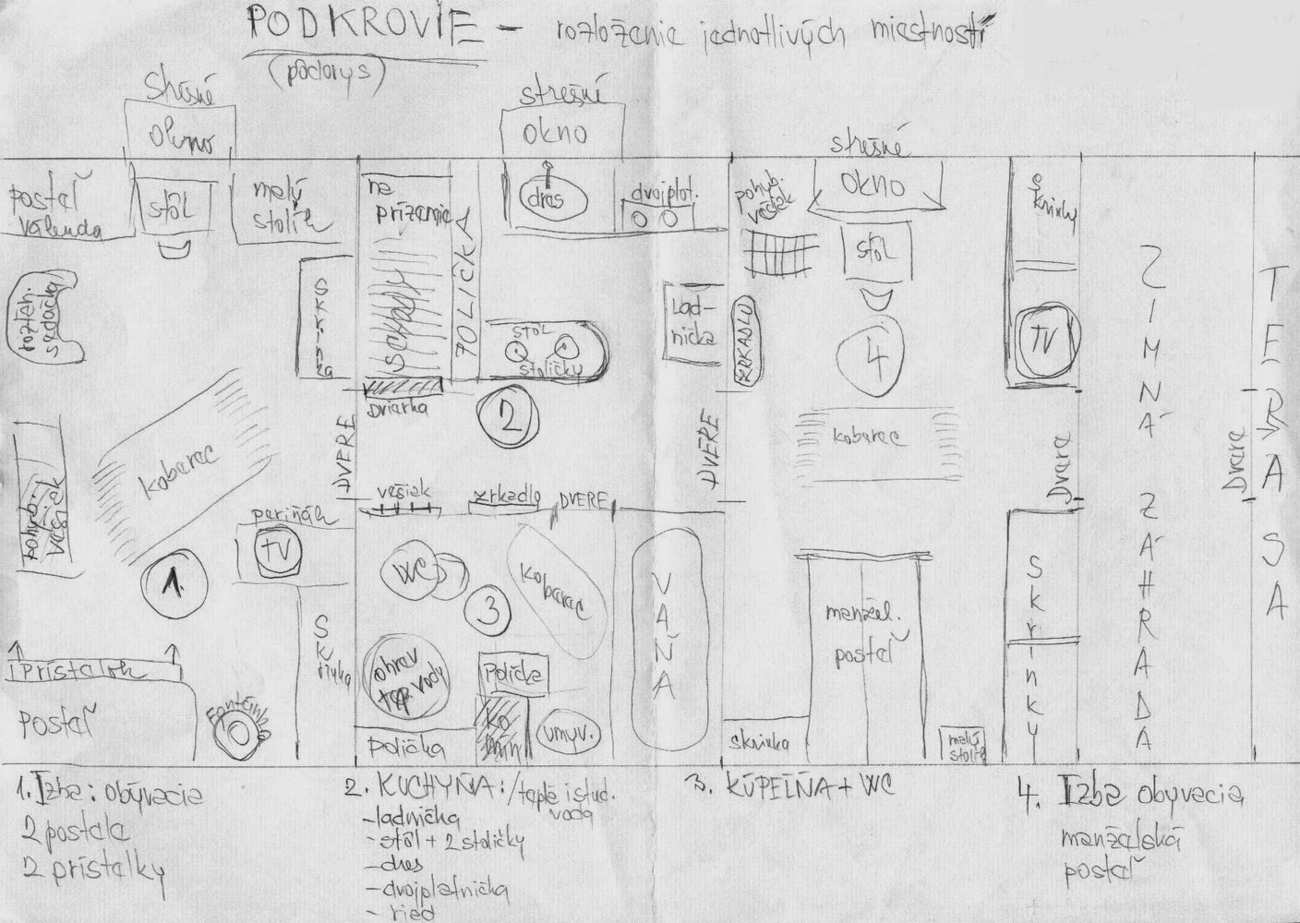 PODKROVIE – rozloženie jednotlivých miestností
(pôdorys)
strešné
okno
strešné
okno
strešné
okno
posteľ
válenda
stôl
malý
stolík
na
prízemie
schody
POLIČKA
dres
dvojplat.
pohyb.
vešiak
stôl
skrinky
TV
rozťah.
sedačka
stôl
stoličky
Lad-
nička
ZRKADLO
4
Dvierka
2
DVERE
DVERE
koberec
koberec
Dvere
Dvere
ZIMNÁ ZÁHRADA
TERASA
pohyb.
vešiak
vešiak
zrkadlo
DVERE
periňák
TV
1.
WC
3
koberec
VAŇA
Skrinka
manžel.
posteľ
Skrinky
Prístelok
posteľ
Fontánka
ohrev
tep. vody
Polička
Polička
Ko
mín
umyv.
skrinka
malý
stolík
1. Izba: obývacia
2 postele
2 prístelky
2. KUCHYŇA: /teplá i stud.
voda
-ladnička
-stôl + 2 stoličky
-dres
-dvojplatnička
-riad
3. KÚPEĽŇA + WC
4. Izba obývacia
manželská
posteľ